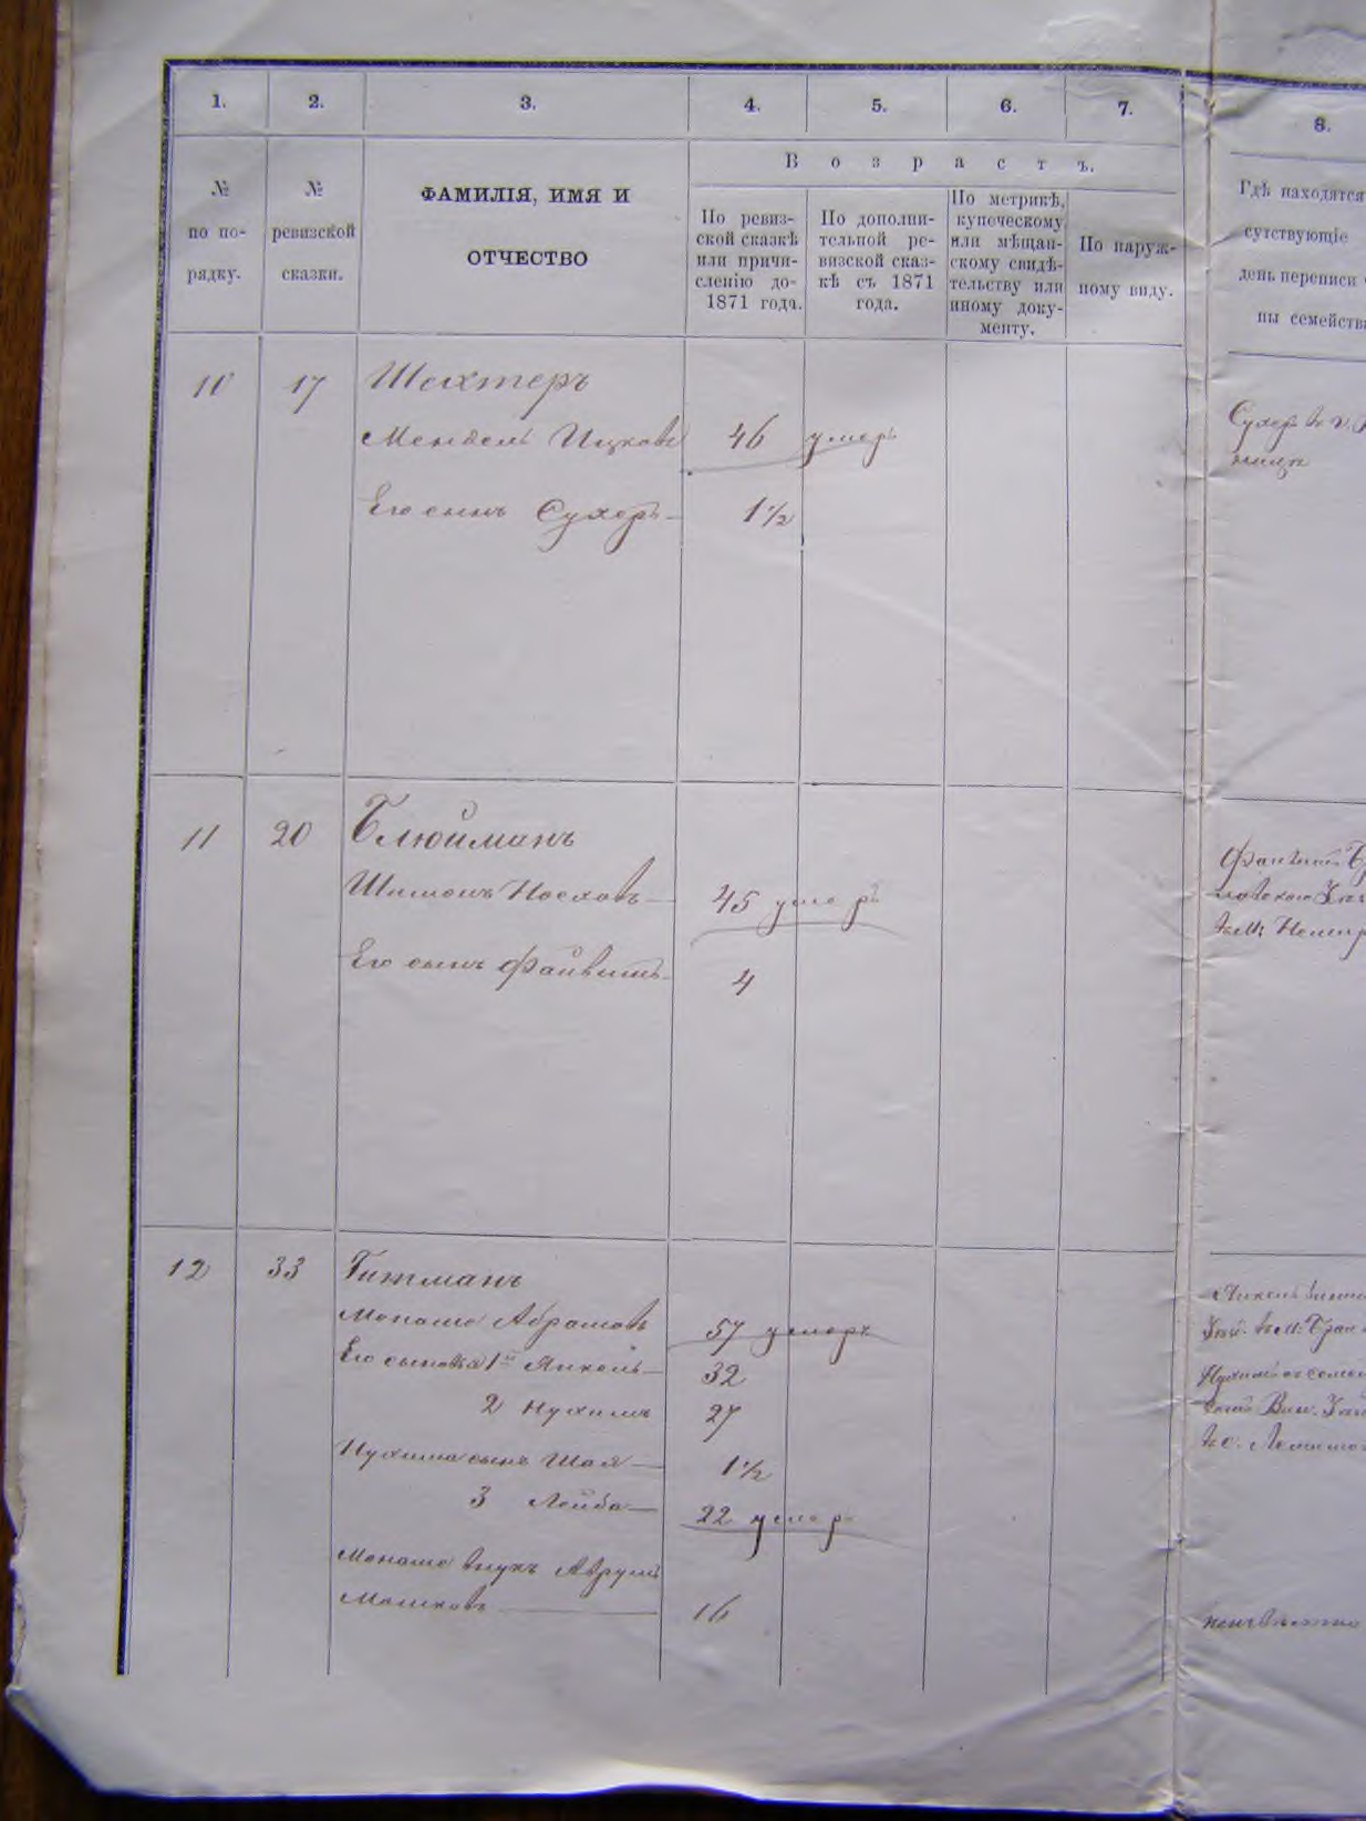 1. 2. 3. 4. 5. 6. 7. 8.
№ по по-рядку.
№ ревизской сказки.
ФАМИЛІЯ, ИМЯ И
ОТЧЕСТВО
Возрастъ.
По ревиз-
ской сказкѣ
или причи-
сленію до-
1871 года.
По дополни-
тельной ре-
визской сказ-
кѣ съ 1871
года.
По метрикѣ,
купеческому
или мѣщан-
скому свидѣ-
тельству или
иному доку-
менту.
По наруж-
ному виду.
Гдѣ находятся
сутствующіе
день переписи
ны семейства
10 17 Шехтеръ
Мендель Ицковъ 46 умеръ
Его сынъ Сухеръ 1½
Сухеръ в г.
11 20 Блюйманъ
Шимонъ Носховъ 45 умеръ
Его сынъ Файвишъ 4
Файвишъ
въ М: Немир
12 33 Гитманъ
Монашо Абрамовъ 57 умеръ
Его сыновья 1й Янкель 32
2 Нухимъ 27
Нухима сынъ Шая 1½
3 Лейба 22 умер
Монашо внукъ Аврумъ
Мошковъ 16
Янкель
Нухимъ
неизвѣстно